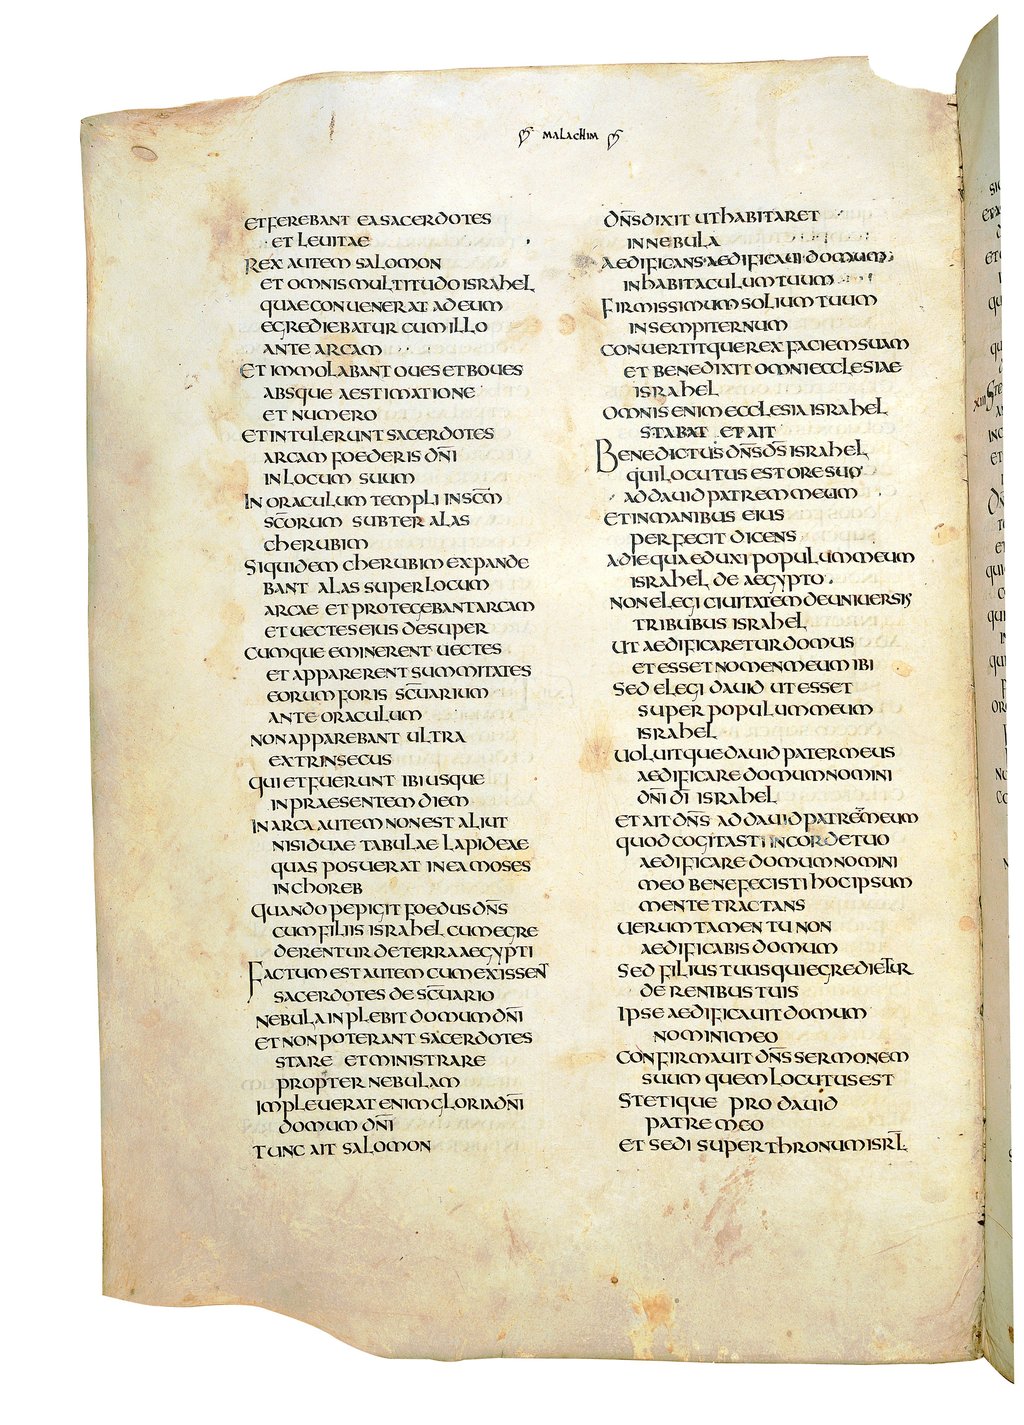 MALACHIM
ETFEREBANT EASACERDOTES
ET LEUITAE
REX AUTEM SALOMON
ET OMNISMULTITUDO ISRAHEL
QUAECONUENERAT ADEUM
EGREDIEBATUR CUMILLO
ANTE ARCAM
ET IMMOLABANT OUES ET BOUES
ABSQUE AESTIMATIONE
ET NUMERO
ET INTULERUNT SACERDOTES
ARCAM FOEDERIS DN̄I
IN LOCUM SUUM
IN ORACULUM TEMPLI INSC̄M
SC̄ORUM SUBTER ALAS
CHERUBIM
SIQUIDEM CHERUBIM EXPANDE
BANT ALAS SUPER LOCUM
ARCAE ET PROTEGEBANT ARCAM
ET UECTES EIUS DESUPER
CUMQUE EMINERENT UECTES
ET APPARERENT SUMMITATES
EORUM FORIS SC̄UARIUM
ANTE ORACULUM
NON APPAREBANT ULTRA
EXTRINSECUS
QUI ET FUERUNT IBI USQUE
IN PRAESENTEM DIEM
IN ARCA AUTEM NON EST ALIUT
NISI DUAE TABULAE LAPIDEAE
QUAS POSUERAT IN EA MOSES
IN CHOREB
QUANDO PEPIGIT FOEDUS DN̄S
CUM FILIIS ISRAHEL CUM EGRE
DERENTUR DE TERRA AEGYPTI
FACTUM EST AUTEM CUM EXISSENT
SACERDOTES DE SC̄UARIO
NEBULA INPLEBIT DOMUM DN̄I
ET NON POTERANT SACERDOTES
STARE ET MINISTRARE
PROPTER NEBULAM
IMPLEUERAT ENIM GLORIA DN̄I
DOMUM DN̄I
TUNC AIT SALOMON
DN̄S DIXIT UT HABITARET
IN NEBULA
AEDIFICANS AEDIFICAUI DOMUM
IN HABITACULUM TUUM
FIRMISSIMUM SOLIUM TUUM
IN SEMPITERNUM
CONUERTITQUE REX FACIEM SUAM
ET BENEDIXIT OMNI ECCLESIAE
ISRAHEL
OMNIS ENIM ECCLESIA ISRAHEL
STABAT ET AIT
BENEDICTUS DN̄S D̄S ISRAHEL
QUI LOCUTUS EST ORE SUO
AD DAUID PATREM MEUM
ET IN MANIBUS EIUS
PERFECIT DICENS
A DIE QUA EDUXI POPULUM MEUM
ISRAHEL DE AEGYPTO
NON ELEGI CIUITATEM DE UNIUERSIS
TRIBUBUS ISRAHEL
UT AEDIFICARETUR DOMUS
ET ESSET NOMEN MEUM IBI
SED ELEGI DAUID UT ESSET
SUPER POPULUM MEUM
ISRAHEL
UOLUITQUE DAUID PATER MEUS
AEDIFICARE DOMUM NOMINI
DN̄I DĪ ISRAHEL
ET AIT DN̄S AD DAUID PATREM MEUM
QUOD COGITASTI IN CORDE TUO
AEDIFICARE DOMUM NOMINI
MEO BENEFECISTI HOC IPSUM
MENTE TRACTANS
UERUM TAMEN TU NON
AEDIFICABIS DOMUM
SED FILIUS TUUS QUI EGREDIETUR
DE RENIBUS TUIS
IPSE AEDIFICAUIT DOMUM
NOMINI MEO
CONFIRMAUIT DN̄S SERMONEM
SUUM QUEM LOCUTUS EST
STETIQUE PRO DAUID
PATRE MEO
ET SEDI SUPER THRONUM ISRL̄